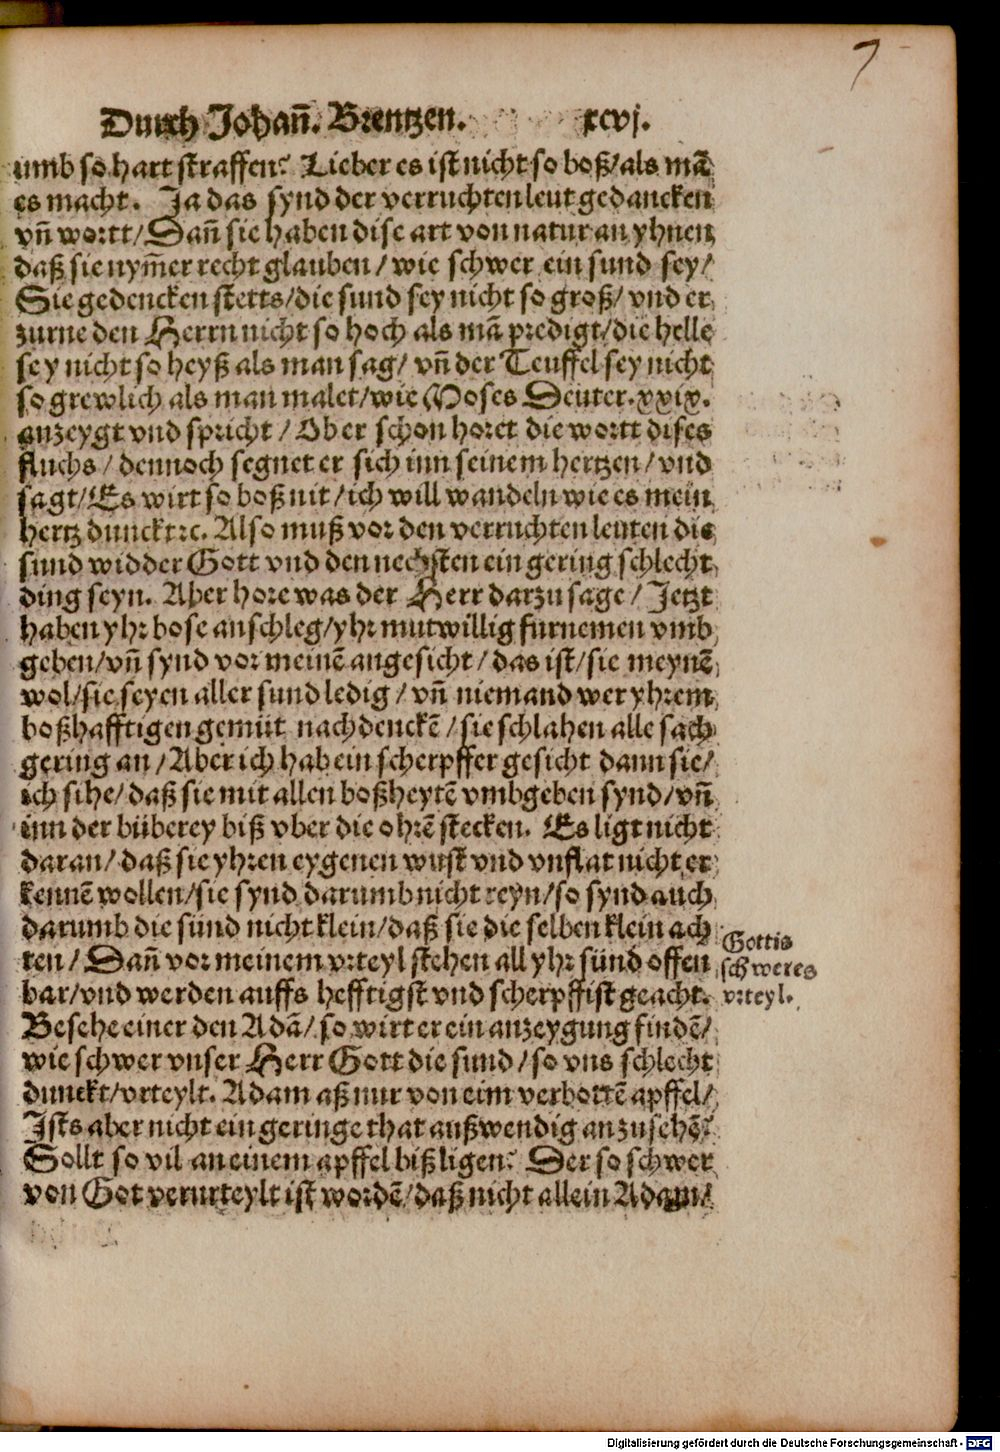 7
Durch Johan̄. Brentzen. xcvj.
umb so hart straffen? Lieber es ist nicht so boß/als mā
es macht. Ja das synd der verruchten leut gedancken
vn̄ wortt/Dan̄ sie haben dise art von natur an yhnen
daß sie nym̄er recht glauben/wie schwer ein sund sey/
Sie gedencken stetts/die sund sey nicht so groß/vnd er
zurne den Herrn nicht so hoch als mā predigt/die helle
sey nicht so heyß als man sag/vn̄ der Teuffel sey nicht
so grewlich als man malet/wie Moses Deuter.xxix.
anzeygt vnd spricht/Ober schon horet die wortt dises
fluchs/dennoch segnet er sich inn seinem hertzen/vnd
sagt/Es wirt so boß nit/ich will wandeln wie es mein
hertz dunckt ꝛc. Also muß vor den verruchten leuten die
sund widder Gott vnd den nechsten ein gering schlecht
ding seyn. Aber hore was der Herr darzu sage/Jetzt
haben yhr bose anschleg/yhr mutwillig furnemen vmb
geben/vn̄ synd vor meinē angesicht/das ist/sie meynē
wol/sie seyen aller sund ledig/vn̄ niemand wer yhrem
boßhafftigen gemüt nachdenckē/sie schlahen alle sach
gering an/Aber ich hab ein scherpffer gesicht dann sie/
ich sihe/daß sie mit allen boßheytē vmbgeben synd/vn̄
inn der büberey biß vber die ohrē stecken. Es ligt nicht
daran/daß sie yhren eygenen wust vnd vnflat nicht er
kennē wollen/sie synd darumb nicht reyn/so synd auch
darumb die sünd nicht klein/daß sie die selben klein ach
ten/Dan̄ vor meinem vrteyl stehen all yhr sünd offen
bar/vnd werden auffs hefftigst vnd scherpffist geacht.
Gottis
schweres
vrteyl.
Besehe einer den Adā/so wirt er ein anzeygung findē/
wie schwer vnser Herr Gott die sund/so vns schlecht
dunckt/vrteylt. Adam aß nur von eim verbottē apffel/
Ists aber nicht ein geringe that außwendig anzusehē?
Sollt so vil an einem apffel biß ligen? Der so schwer
von Got verurteylt ist wordē/daß nicht allein Adam/
Digitalisierung gefördert durch die Deutsche Forschungsgemeinschaft - DFG